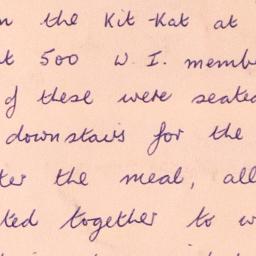 the Kit-Kat at
500 W. I.
of these were seated
downstairs for the
the meal, all
together to